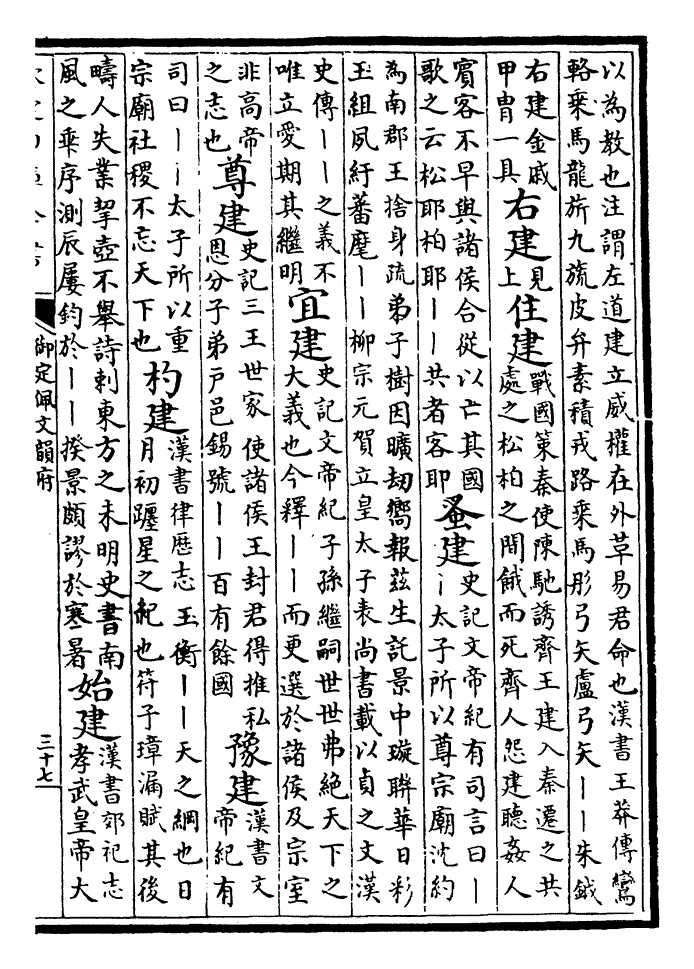 以為教也注謂左道建立威權在外革易君命也漢書王莽傳鸞
輅乘馬龍旂九旒皮弁素積戎路乘馬彤弓矢盧弓矢丨丨朱鉞
右建金戚
甲冑一具
右建
見
上
住建
戰國策秦使陳馳誘齊王建入秦遷之共
處之松柏之間餓而死齊人怨建聽姦人
賓客不早與諸侯合從以亡其國
歌之云松耶柏耶丨丨共者客耶
蚤建
史記文帝紀有司言曰丨
丨太子所以尊宗廟沈約
為南郡王捨身疏弟子樹因曠劫嚮報茲生託景中璇聯華日彩
玉組夙紆蕃麾丨丨柳宗元賀立皇太子表尚書載以貞之文漢
史傳丨丨之義不
唯立愛期其繼明
宜建
史記文帝紀子孫繼嗣世世弗絕天下之
大義也今釋丨丨而更選於諸侯及宗室
非高帝
之志也
尊建
史記三王世家 使諸侯王封君得推私
恩分子弟戶邑錫號丨丨百有餘國
豫建
漢書文
帝紀有
司曰丨丨太子所以重
宗廟社稷不忘天下也
杓建
漢書律歷志玉衡丨丨天之綱也日
月初躔星之紀也符子璋漏賦其後
疇人失業挈壺不舉詩刺東方之未明史書南
風之乘序測辰屢鈞於丨丨揆景頗謬於寒暑
始建
漢書郊祀志
孝武皇帝大
御定佩文韻府
三十七